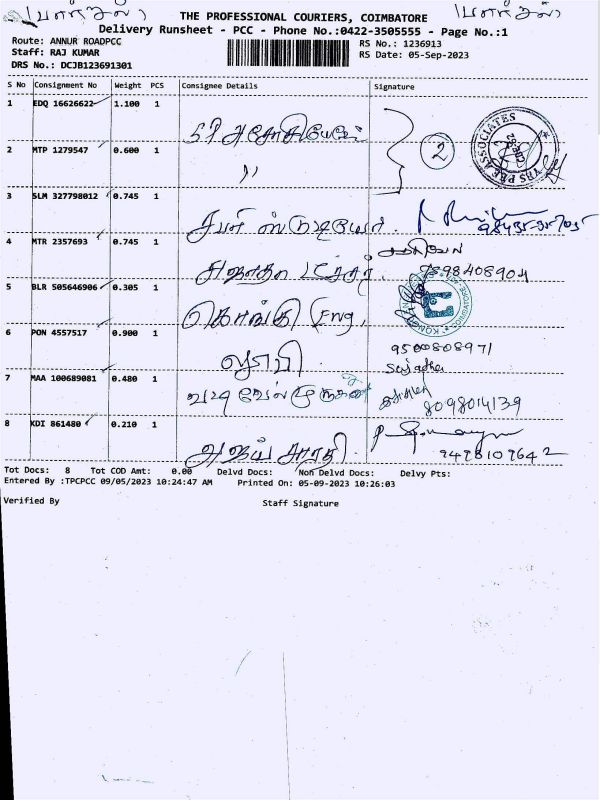 (பார்சல்) THE PROFESSIONAL COURIERS, COIMBATORE (பார்சல்)
Delivery Runsheet - PCC - Phone No.:0422-3505555 - Page No.:1
Route: ANNUR ROADPCC RS No.: 1236913
Staff: RAJ KUMAR RS Date: 05-Sep-2023
DRS No.: DCJB123691301
S No Consignment No Weight PCS Consignee Details Signature
1 EDQ 16626622 1.100 1
2 MTP 1279547 0.600 1 " 2
3 SLM 327798012 0.745 1
4 MTR 2357693 0.745 1 7598408904
5 BLR 505646906 0.305 1 கொங்கு Eng.
6 PON 4557517 0.900 1 9500808971
Sujatha
7 MAA 100689081 0.480 1 வடிவேல் முருகன் 8098014139
8 KDI 861480 0.210 1 அஜய் சாரதி. 9498109642
Tot Docs: 8 Tot COD Amt: 0.00 Delvd Docs: Non Delvd Docs: Delvy Pts:
Entered By :TPCPCC 09/05/2023 10:24:47 AM Printed On: 05-09-2023 10:26:03
Verified By Staff Signature